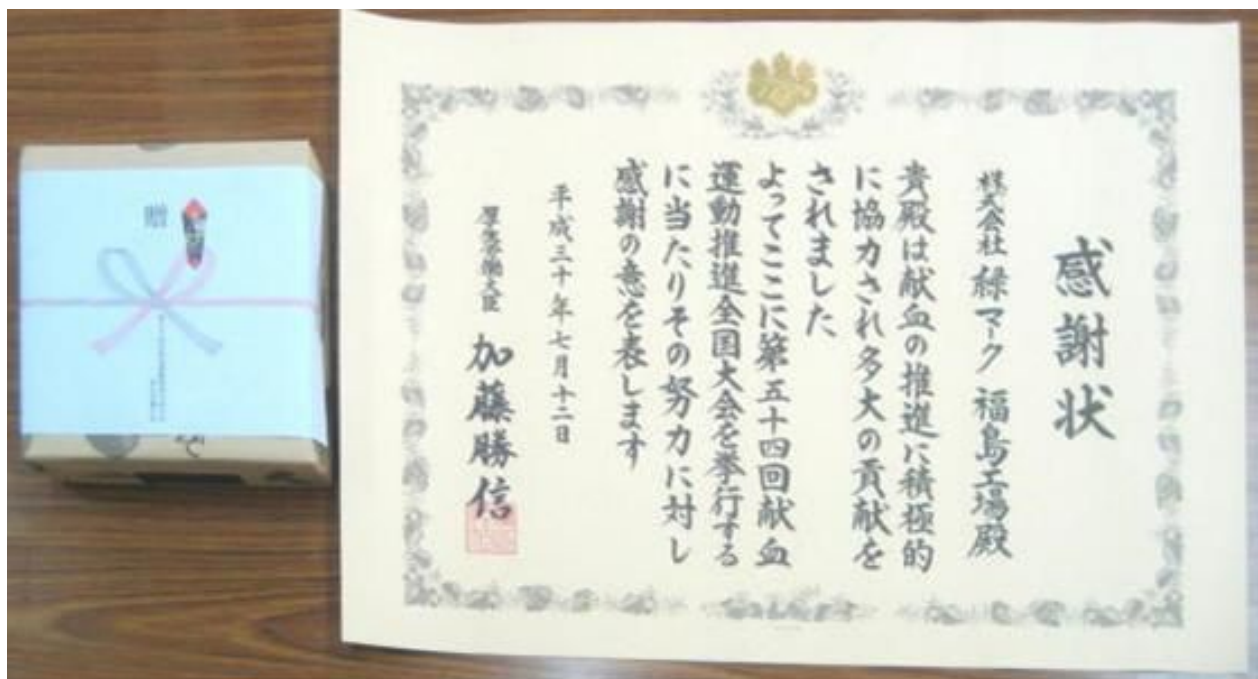 感謝状
株式会社 緑マーク 福島工場殿
貴殿は献血の推進に積極的
に協力され多大の貢献を
されました
よってここに第五十四回献血
運動推進全国大会を挙行する
に当たりその努力に対し
感謝の意を表します
平成三十年七月十二日
厚生労働大臣 加藤勝信
贈